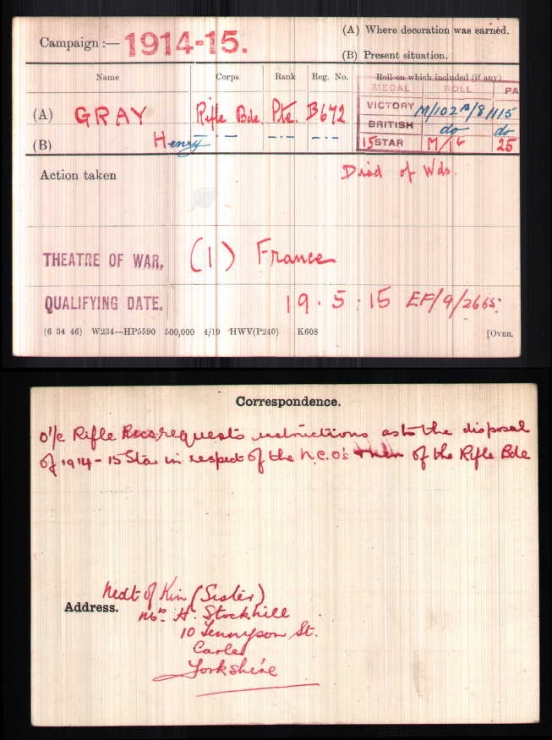 Campaign :— 1914-15.
(A) Where decoration was earned.
(B) Present situation.
Name Corps Rank Reg. No. Roll on which included (if any)
MEDAL ROLL PA
(A) GRAY Rifle Bde. Pte. B672
VICTORY M/102 B/8 1115
BRITISH do do
(B) Henry —·— —·— —·—
15 STAR 25
Action taken
Died of Wds.
THEATRE OF WAR. (1) France
QUALIFYING DATE. 19.5.15 EF/9/2665.
(6 34 46) W234—HP5590 500,000 4/19 HWV(P240) K608 [OVER.
Correspondence.
O'i/c Rifle Recs requests instructions as to the disposal
of 1914-15 Star in respect of the N.C.O's & Men of the Rifle Bde
Next of Kin (Sister)
Address. Mrs H. Stockhill
10 Tennyson St.
Yorkshire